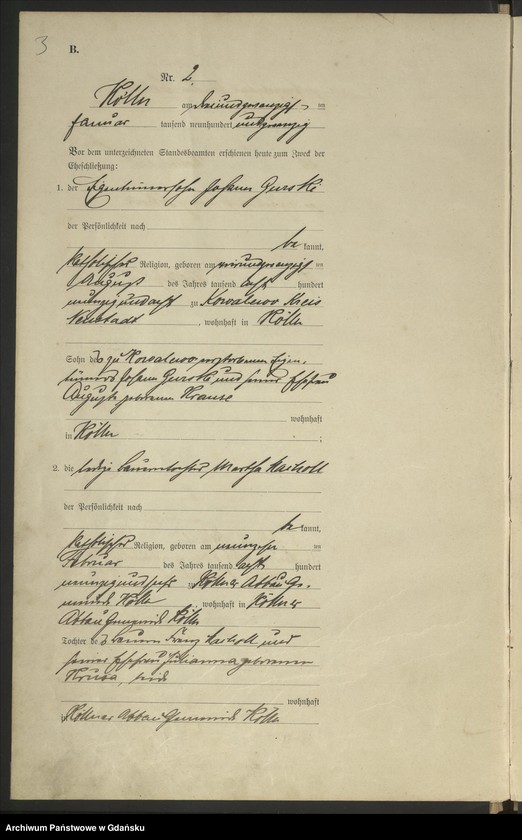 3
B.
Nr. 2
Kölln am dreiundzwanzigsten
Januar tausend neunhundert undzwanzig
Vor dem unterzeichneten Standesbeamten erschienen heute zum Zweck der
Eheschließung:
1. der Eigentümersohn Johann Gurski
der Persönlichkeit nach
be kannt,
katholischer Religion, geboren am vierundzwanzigsten
August des Jahres tausend acht hundert
neunzigundacht zu Kowalewo Kreis
Neustadt, wohnhaft in Kölln
Sohn des zu Kowalewo verstorbenen Eigen-
tümers Johann Gurski und seiner Ehefrau
Auguste geborenen Krause
wohnhaft
in Kölln;
2. die ledige Bauerntochter Martha
der Persönlichkeit nach
be kannt,
katholischer Religion, geboren am neunzehnten
Februar des Jahres tausend acht hundert
neunzigund zu Köllner Abbau Ge-
meinde Kölln, wohnhaft in Köllner
Abbau Gemeinde Kölln
Tochter des Bauern Franz und
seiner Ehefrau Julianna geborenen
beide
wohnhaft
in Köllner Abbau Gemeinde Kölln
Archiwum Państwowe w Gdańsku